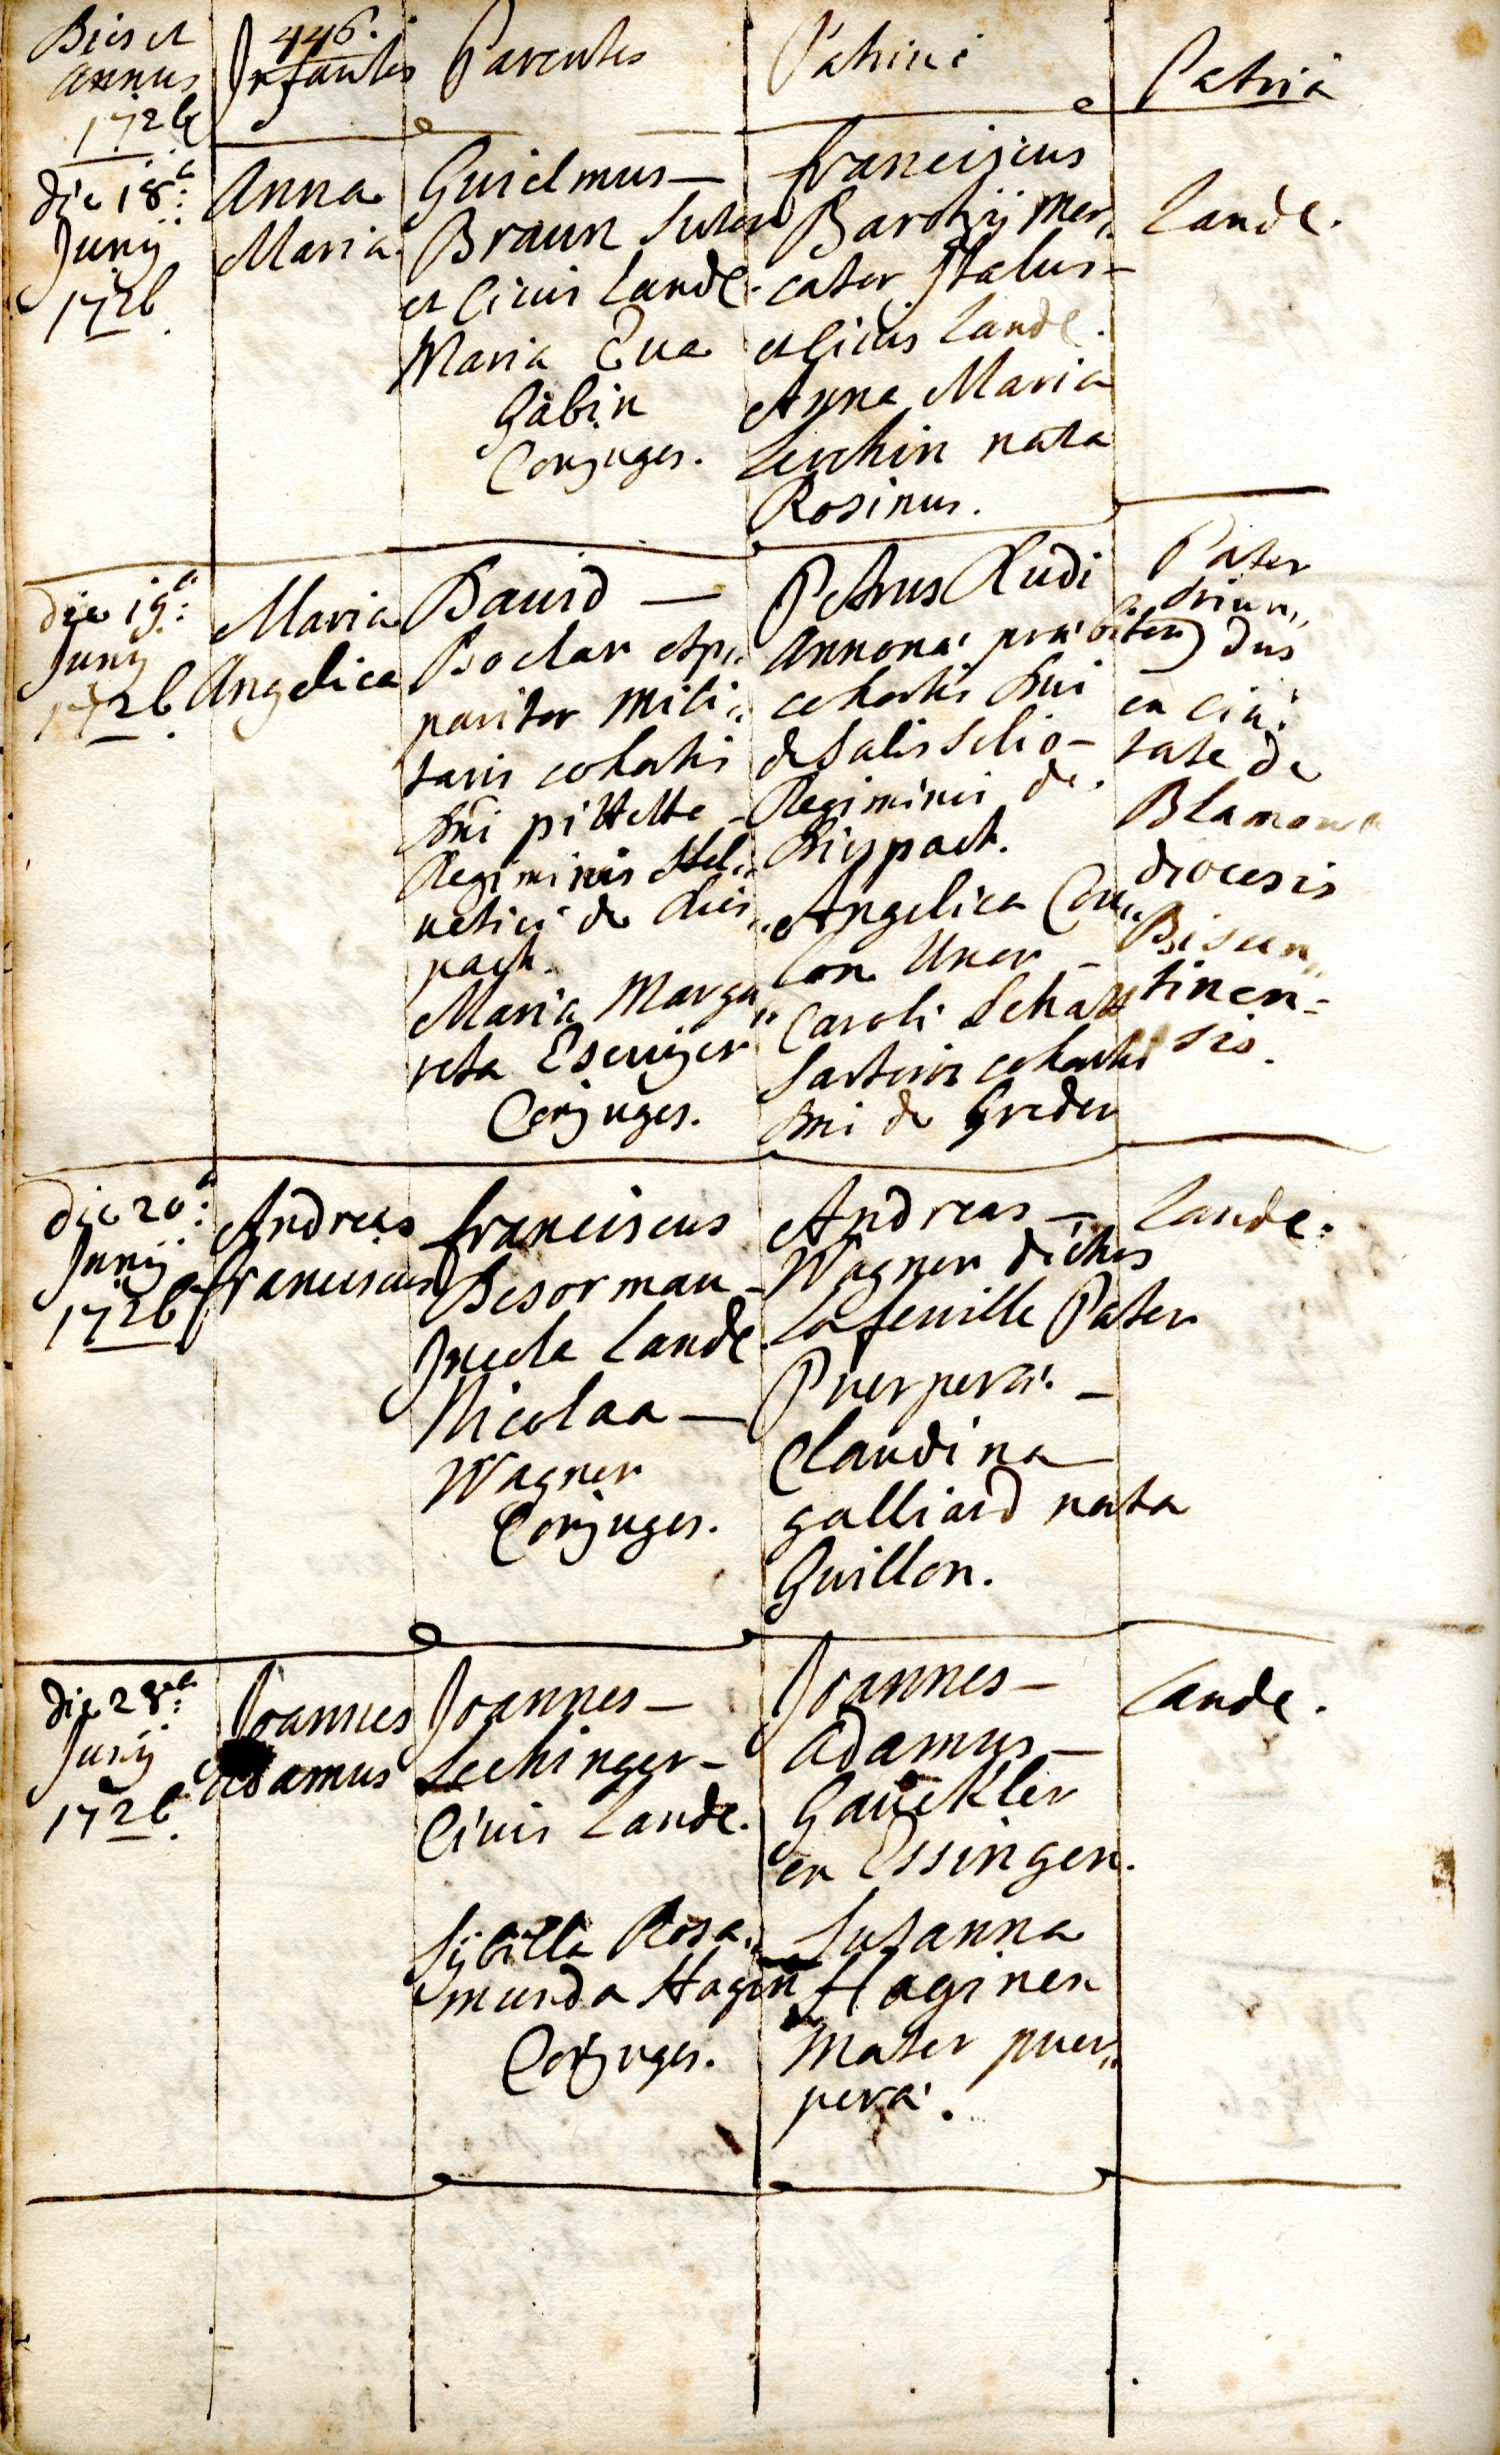 446.
Dies et
annus
1726
Infantes
Parentes
Patrini
Patria
die 18a:
Junÿ
1726.
Anna
Maria.
Guielmus —
Braun sutor
et Civis Landĕ.
Maria Eva
Gäbin
Conjuges.
Franciscus
Barotzÿ Mer„
cator Italus —
et Civis Landĕ.
Anna Maria
Lerchin nata
Rosinus.
Landĕ.
die 19a:
Junÿ
1726.
Maria
Angelica
David —
Boclar Ap„
paritor mili„
taris cohortis
Dni pittette –
Regiminis Hel„
vetici de dies„
pach.
Maria Marga„
reta Eseniger
Conjuges.
Petrus Rudi
annonaĕ praĕbitor
cohortis Dni
de Salis Selio –
Regiminis de.
Diespach.
Angelica Cou„
lon Uxor –
Caroli Schatz
Sartoris cohortis
Dni de Greder
Pater
oriun„
dus
ex civi:
tate de
Blamont
diocesis
Bisun„
tinen–
sis.
die 20a:
Junÿ
1726
Andreas
Franciscus
Franciscus
Besorman –
Incola Landĕ.
Nicolaa —
Wagner
Conjuges.
Andreas —
Wagner dictus
Lafeuille Pater
Puerperaĕ. —
Claudina —
galliard nata
Guillon.
Landĕ.
die 28a:
Junÿ
1726.
Joannes
Adamus
Joannes —
Lechinger –
Civis Landĕ.
Sÿbilla Rosa„
munda Hagin
Conjuges.
Joannes —
Adamus —
Gauckler
ex Essingen.
Susanna
Haginen
Mater puer„
peraĕ.
Landĕ.